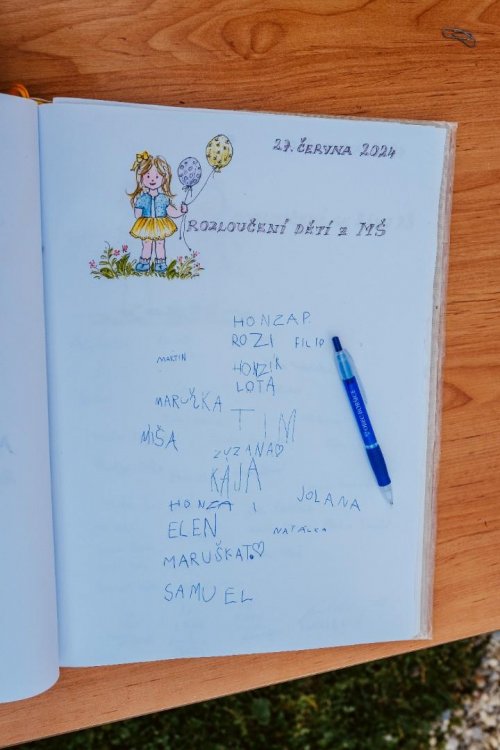 27. ČERVNA 2024
ROZLOUČENÍ DĚTÍ Z MŠ
HONZA P.
ROZI
FILIP
MARTIN
HONZIK
LOTA
MARUŠKA
TIM
MIŠA
ZUZANA♡
KÁJA
HONZA I
JOLANA
ELEN
NATÁLKA
MARUŠKAT.♡
SAMUEL